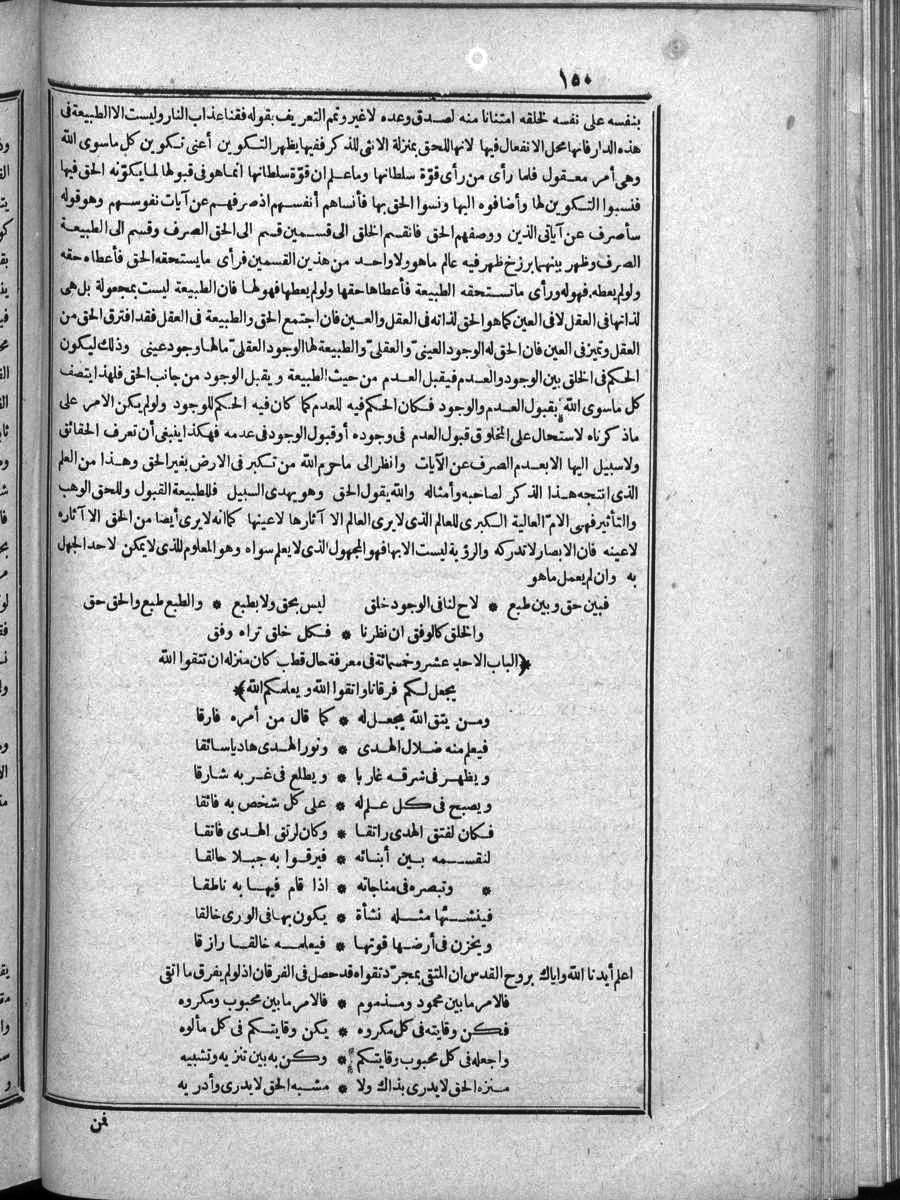 ١٥٠
بنفسه على نفسه لخلقه امتنانا منه لصدق وعده لاغير وتمم التعريف بقوله فقنا عذاب النار وليست الا الطبيعة فى
هذه الدار فانها محل الانفعال فيها لانها للحق بمنزلة الانثى للذكر ففيها يظهر التكوين أعنى تكوين كل ماسوى الله
وهى أمر معقول فلما رأى من رأى قوّة سلطانها وما علم ان قوّة سلطانها انما هو فى قبولها لما يكوّنه الحق فيها
فنسبوا التكوين لها وأضافوه اليها ونسوا الحق بها فأنساهم أنفسهم اذ صرفهم عن آيات نفوسهم وهو قوله
سأصرف عن آياتى الذين ووصفهم الحق فانقسم الخلق الى قسمين قسم الى الحق الصرف وقسم الى الطبيعة
الصرف وظهر بينهما برزخ ظهر فيه عالم ماهو ولا واحد من هذين القسمين فرأى ما يستحقه الحق فأعطاه حقه
ولولم يعطه فهوله ورأى ماتستحقه الطبيعة فأعطاها حقها ولولم يعطها فهولها فان الطبيعة ليست بمجعولة بل هى
لذاتها فى العقل لا فى العين كماهو الحق لذاته فى العقل والعين فان اجتمع الحق والطبيعة فى العقل فقد افترق الحق من
العقل وتميز فى العين فان الحق له الوجود العينىّ والعقلىّ والطبيعة لها الوجود العقلىّ مالها وجود عينى وذلك ليكون
الحكم فى الخلق بين الوجود والعدم فيقبل العدم من حيث الطبيعة ويقبل الوجود من جانب الحق فلهذا يتصف
كل ماسوى الله بقبول العدم والوجود فكان الحكم فيه للعدم كما كان فيه الحكم للوجود ولولم يكن الامر على
ماذكرناه لاستحال على المخلوق قبول العدم فى وجوده أو قبول الوجود فى عدمه فهكذا ينبغى أن تعرف الحقائق
ولاسبيل اليها الابعدم الصرف عن الآيات وانظر الى ماحرم الله من تكبر فى الارض بغير الحق وهذا من العلم
الذى انتجه هذا الذكر لصاحبه وأمثاله والله يقول الحق وهو يهدى السبيل فللطبيعة القبول وللحق الوهب
والتأثير فهى الامّ العالية الكبرى للعالم الذى لايرى العالم الا آثارها لاعينها كما انه لايرى أيضا من الحق الا آثاره
لاعينه فان الابصار لاتدركه والرؤية ليست الابها فهو المجهول الذى لا يعلم سواه وهو المعلوم للذى لا يمكن لاحد الجهل
به وان لم يعمل ماهو
فبين حق وبين طبع * لاح لنا فى الوجود خلق ليس بحق ولا بطبع * والطبع طبع والحق حق
والخلق كالوفق ان نظرنا * فكل خلق تراه وفق
﴿الباب الاحد عشر وخمسمائة فى معرفة حال قطب كان منزله ان تتقوا الله
يجعل لكم فرقانا واتقوا الله ويعلمكم الله﴾
ومن يتق الله يجعل له * كما قال من أمره فارقا
فيعلم منه ضلال الهدى * ونور الهدى هاديا سائقا
ويظهر فى شرقه غاربا * ويطلع فى غربه شارقا
ويصبح فى كل علم له * على كل شخص به فائقا
فكان لفتق الهدى راتقا * وكان لرتق الهدى فاتقا
لنقسمه بين أبنائه * فيرقوا به جبلا حالقا
* وتبصره فى مناجاته * اذا قام فيها به ناطقا
فينشئها مثله نشأة * يكون بها فى الورى خالقا
ويخزن فى أرضها قوتها * فيعلمه خالقا رازقا
اعلم أيدنا الله واياك بروح القدس ان المتقى بمجرّد تقواه قد حصل فى الفرقان اذ لولم يفرق ما اتقى
فالامر ما بين محمود ومذموم * فالامر ما بين محبوب ومكروه
فكن وقايته فى كل مكروه * يكن وقايتكم فى كل مألوه
واجعله فى كل محبوب وقايتكم * وكن به بين تنزيه وتشبيه
منزه الحق لايدرى بذاك ولا * مشبه الحق لايدرى وأدريه
فمن